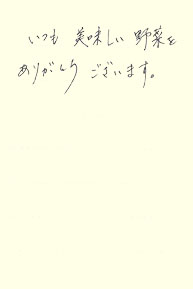 いつも 美味しい 野菜を
ありがとう ございます。